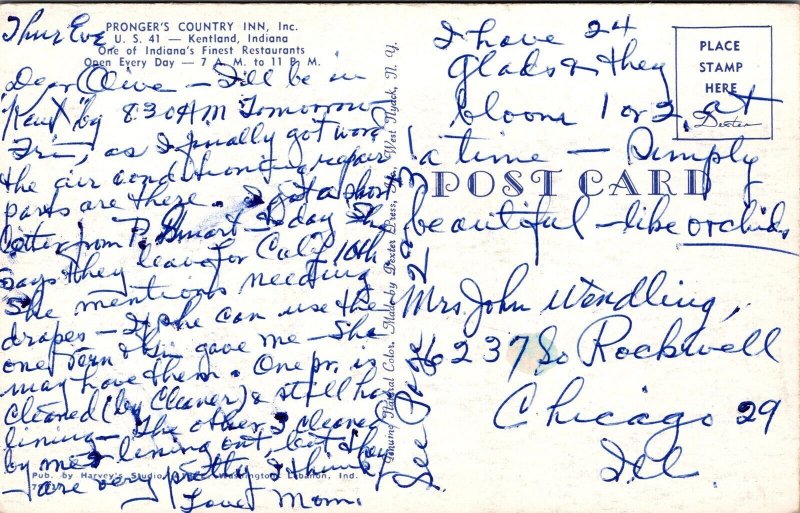 PRONGER'S COUNTRY INN, Inc.
U. S. 41 — Kentland, Indiana
One of Indiana's Finest Restaurants
Open Every Day — 7 A. M. to 11 P. M.
Thur Eve
Dear Olive — I'll be in
"Kent" by 8:30 AM Tomorrow
Fri—, as I finally got word
the air conditioning repair
parts are there. I got a short
letter from P. Smart today. She
says they leave for Calif 10th
She mentions needing
drapes — If she can use the
ones gave me — She
may have them. One pr. is
cleaned (by Cleaner) & still has
lining — The other I cleaned
by me — lining out, but they
— are very pretty I think
Love, Mom.
Pub. by Harvey's Studio, Lebanon, Ind.
Genuine Natural Color. Made by Dexter Press, West Nyack, N. Y.
See Page 2
I have 24
glads & they
bloom 1 or 2, at
a time — Simply
beautiful — like orchids
POST CARD
PLACE
STAMP
HERE
Dexter
Mrs. John Wendling,
6237 So Rockwell
Chicago 29
Ill.